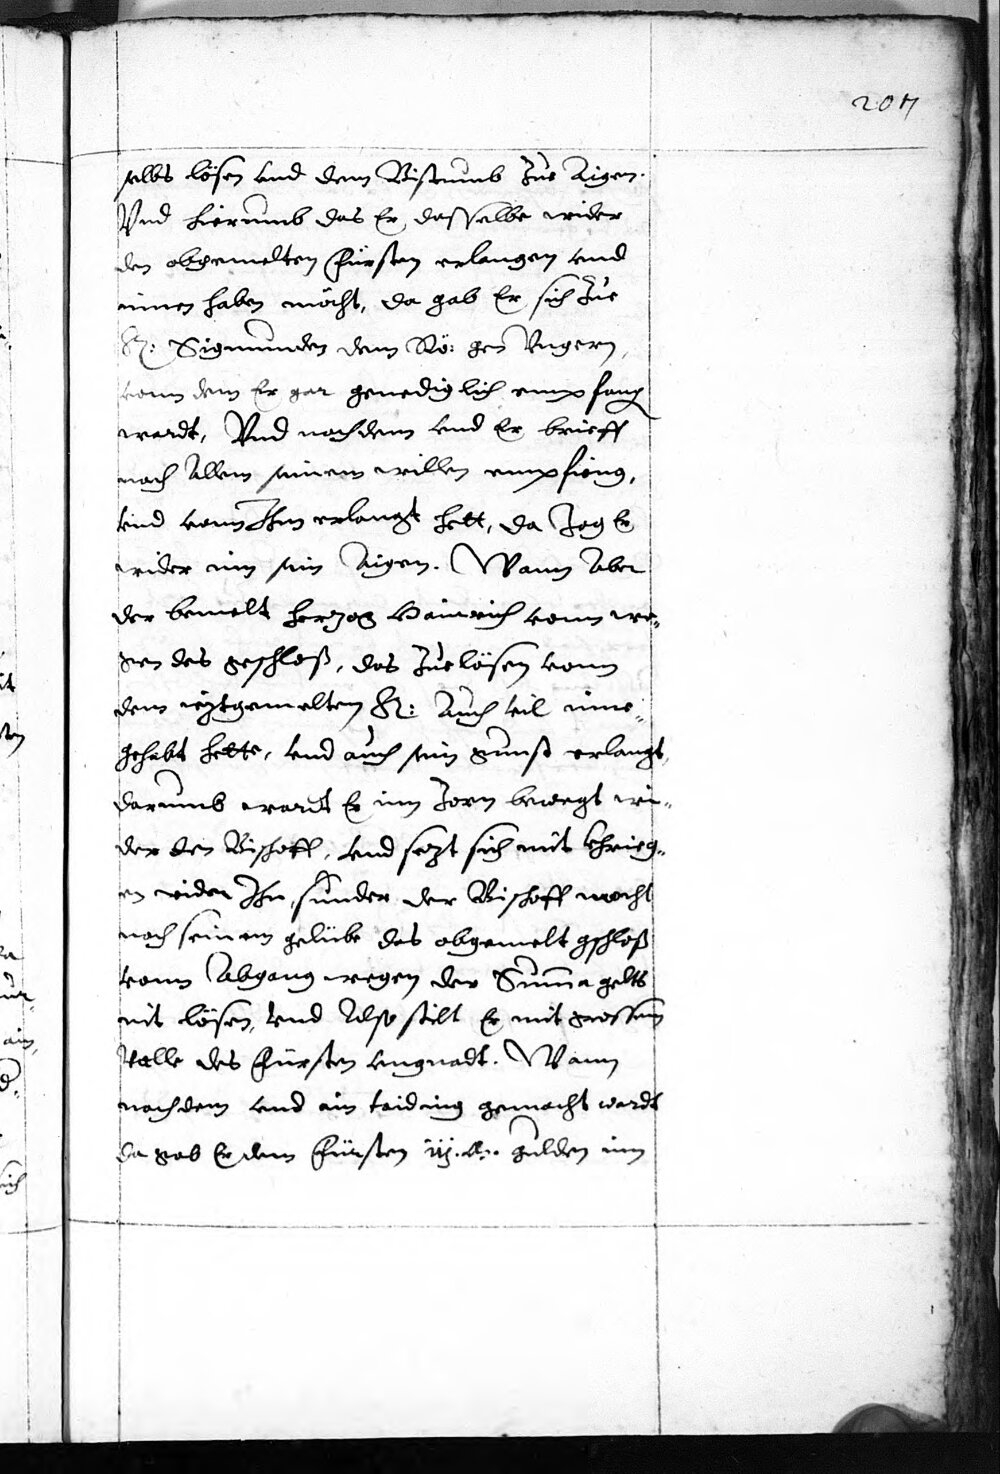 207
selbs lösen vnd dem Bistumb Zue Aigen.
Vnd hierumb das Er dasselbe wider
den obgemelten Fürsten erlangen vnd
innen haben möcht, da gab Er sich Zue
K: Sigmunden dem Rö: gen Vngern,
vonn dem Er gar genediglich empfang
wardt, Vnd nachdem vnd Er brieff
nach Allem seinem willen empfieng,
vnd vonn Ihm erlangt hett, da Zog Er
wider inn sein Aigen. Wann Aber
der bemelt Herzog Hainrich vonn we„
gen des geschloß, das Zuelösen vonn
dem ieztgemelten K: Auch teil inne„
gehabt hette, vnd auch sein gunst erlangt,
darumb wardt Er inn Zorn bewegt wi„
der den Bischoff, vnd sezt sich mit khrieg„
en wider Ihn, sunder der Bischoff mocht
nach seinem gelübe das obgemelt gschloß
vonn Abgang wegen der Summa gelts
nit lösen, vnd Also fielt Er mit grossem
Valle des Fürsten vngnadt. Wann
nachdem vnd ein taiding gemacht wardt
da gab Er dem Fürsten iij. M. gulden inn